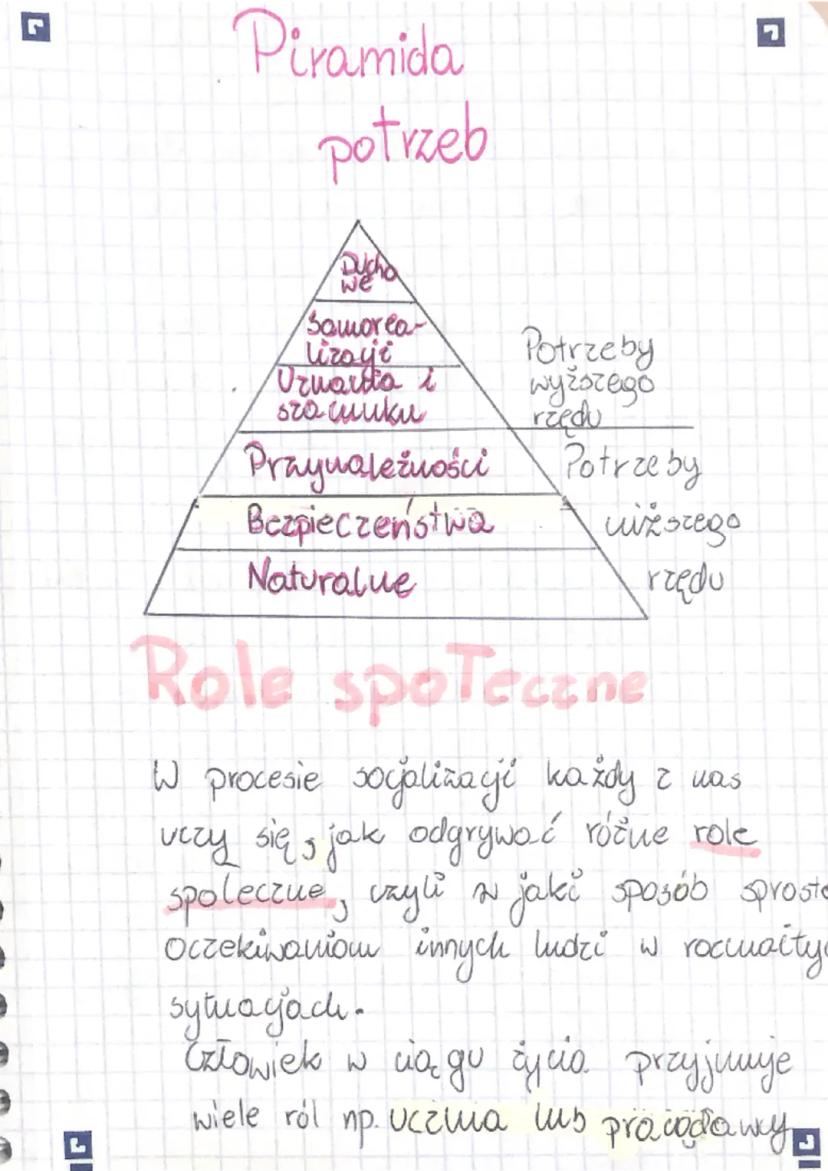 Piramida
potrzeb
Ducho
we
Samorea-
lizacji
Uznania i
szacunku
Potrzeby
wyższego
rzędu
Przynależności
Potrzeby
Bezpieczeństwa
niższego
Naturalne
rzędu
Role społeczne
W procesie socjalizacji każdy z nas
uczy się, jak odgrywać różne role
społeczne, czyli w jaki sposób sprosta
oczekiwaniom innych ludzi w rozmaityc
sytuacjach.
Człowiek w ciągu życia przyjmuje
wiele ról np. ucznia lub pracodawcy